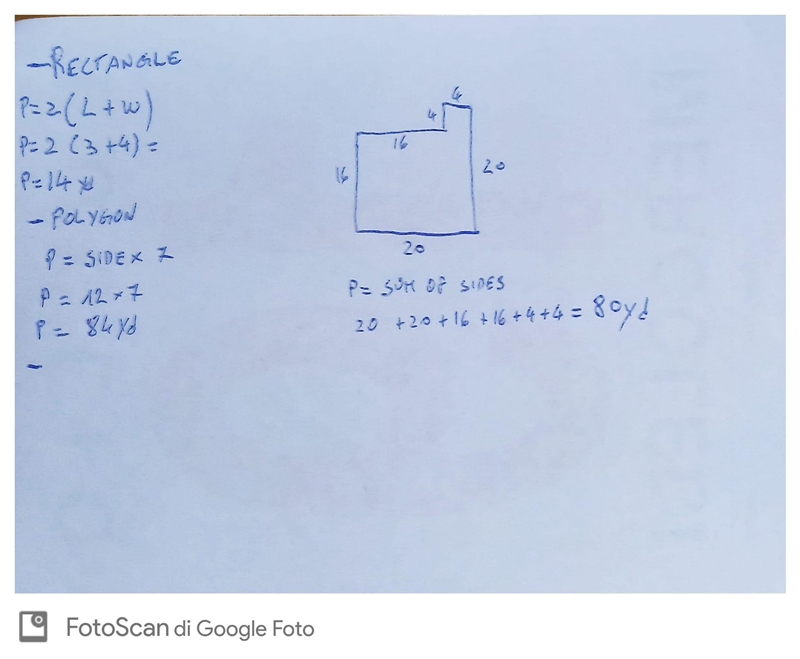 - RECTANGLE
P=2(L+W)
P=2(3+4)=
P=14 yd
- POLYGON
P = SIDE x 7
P = 12 x 7
P = 84 yd
-
4
4
16
16
20
20
P= SUM OF SIDES
20 +20+16+16+4+4= 80yd
FotoScan di Google Foto